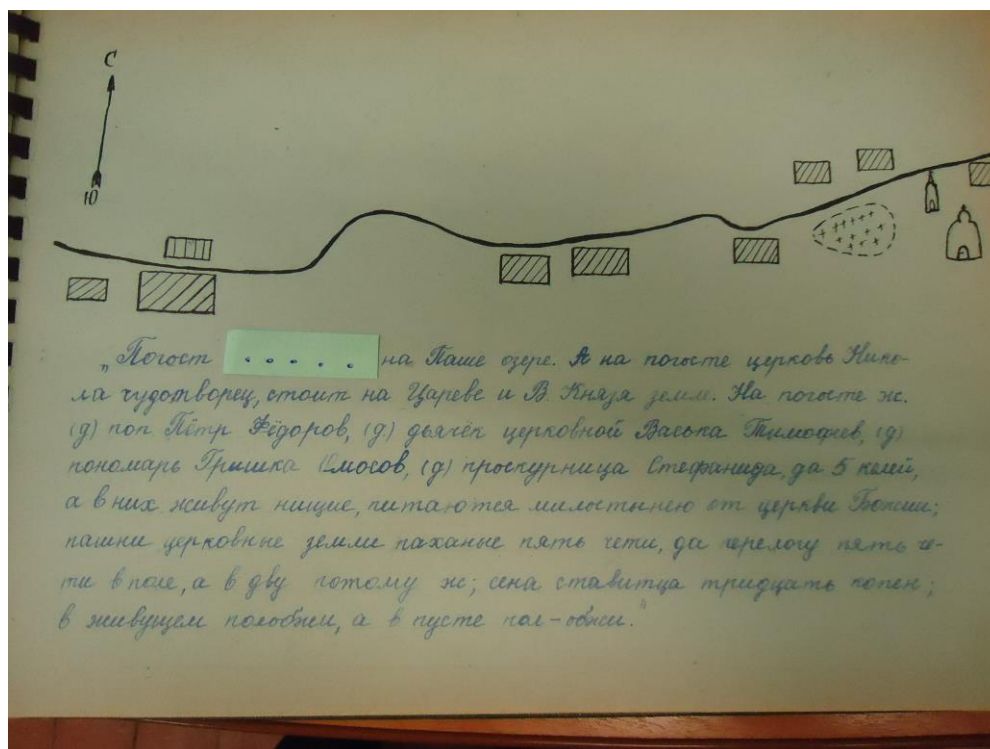 С
Ю
„Погост ..... на Паше озере. А на погосте церковь Нико-
ла чудотворец, стоит на Цареве и В. Князя земле. На погосте ж.
(д) поп Пётр Фёдоров, (д) дьячёк церковной Васька Тимофеев, (д)
пономарь Гришка Амосов, (д) проскурница Стефанида, да 5 келей,
а в них живут нищие, питаются милостынею от церкви Божии;
пашни церковные земли паханые пять чети, да перелогу пять че-
ти в поле, а в дву потому ж; сена ставитца тридцать копен;
в живущем полобжи, а в пусте пол-обжи."